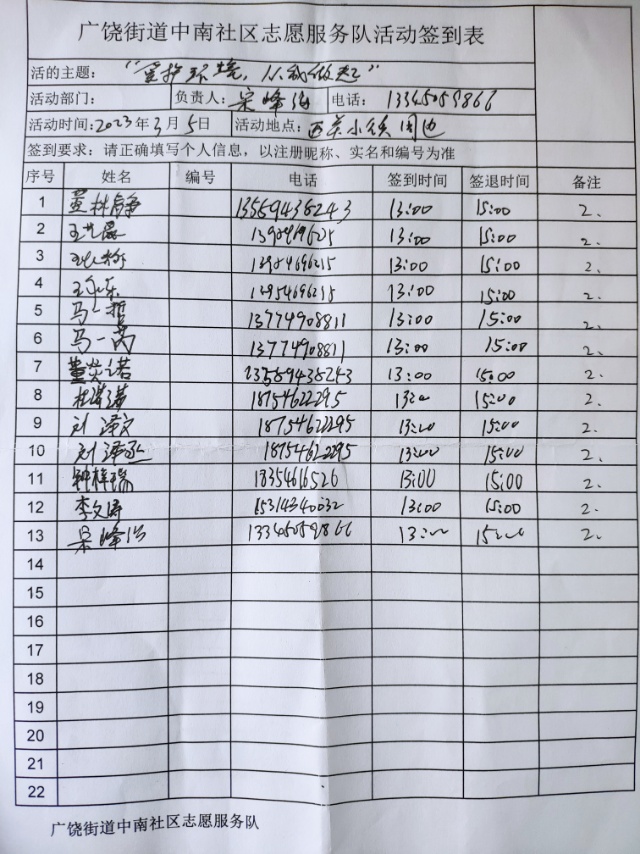 广饶街道中南社区志愿服务队活动签到表
活的主题： "爱护环境，从我做起"
活动部门： 负责人： 电话： 13345059866
活动时间：2023年3月5日 活动地点： 周边
签到要求：请正确填写个人信息，以注册昵称、实名和编号为准
序号 姓名 编号 电话 签到时间 签退时间 备注
1 13:00 15:00 2.
2 13:00 15:00 2.
3 13:00 15:00 2.
4 13:00 15:00 2.
5 马一哲 13774908811 13:00 15:00 2.
6 马一芮 13774908811 13:00 15:00 2.
7 13:00 15:00 2.
8 18754622295 13:00 15:00 2.
9 刘泽文 18754622295 13:00 15:00 2.
10 18754622295 13:00 15:00 2.
11 钟梓瑞 18354616526 13:00 15:00 2.
12 李文涛 15314340032 13:00 15:00 2.
13 13345059866 13:00 15:00 2.
14
15
16
17
18
19
20
21
22
广饶街道中南社区志愿服务队